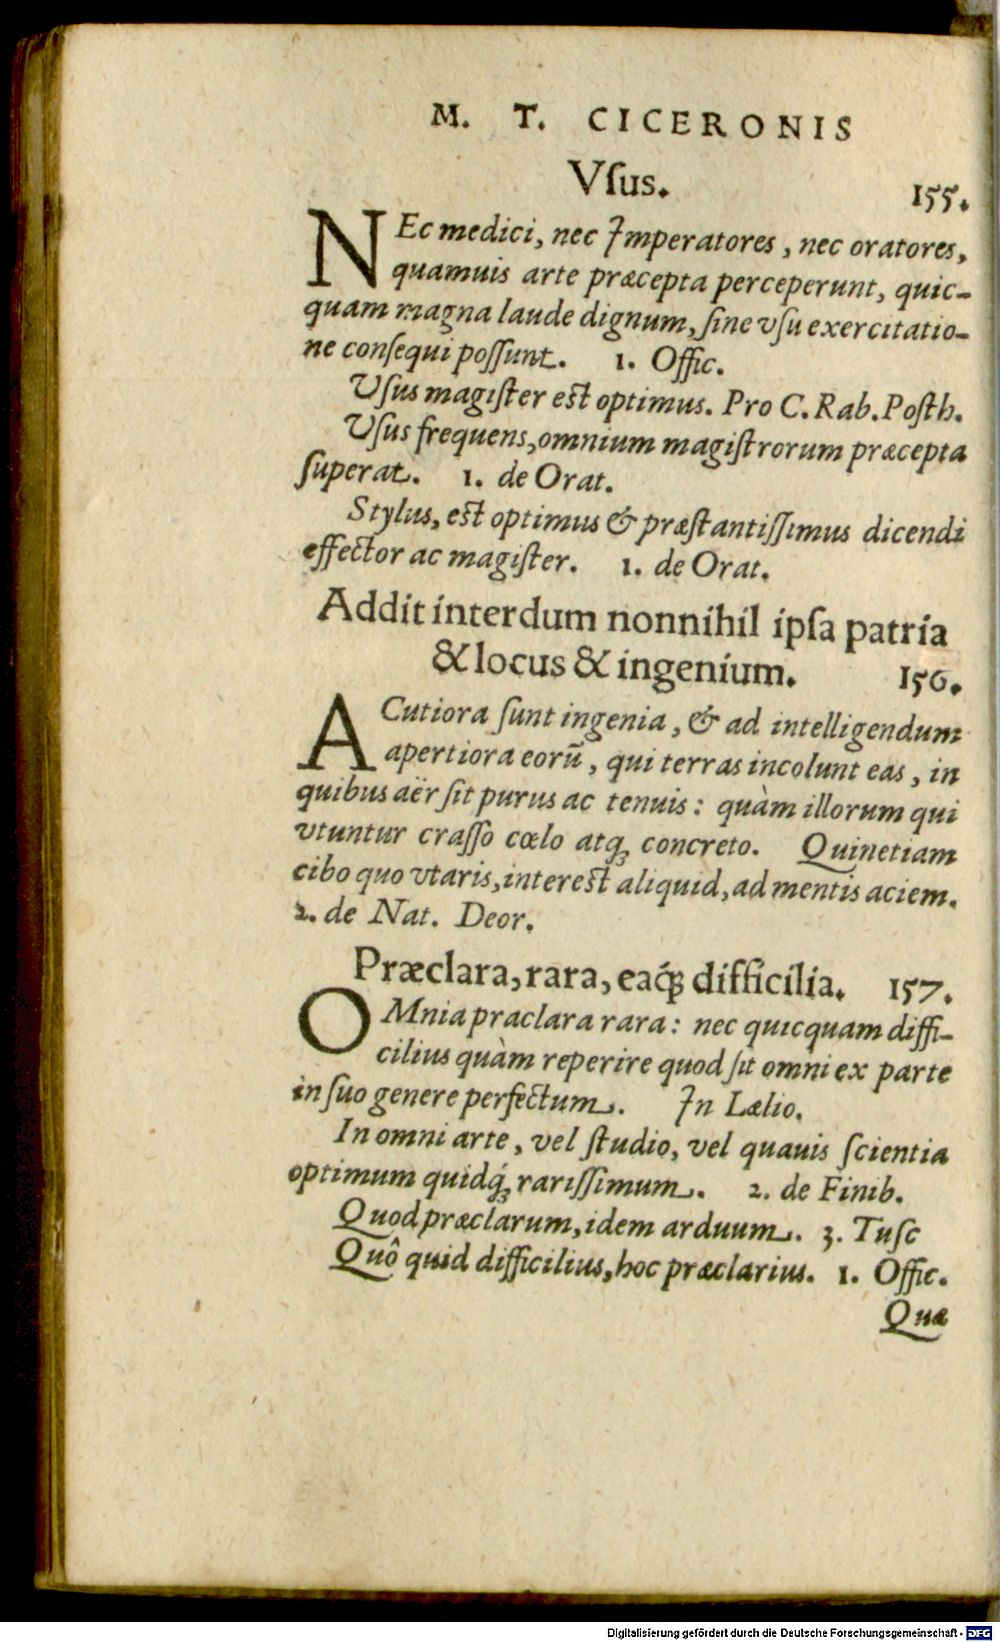 M. T. CICERONIS
Vſus. 155.
NEc medici, nec Imperatores, nec oratores,
quamuis arte præcepta perceperunt, quic-
quam magna laude dignum, ſine vſu exercitatio-
ne conſequi poſſunt. 1. Offic.
Vſus magiſter est optimus. Pro C. Rab. Poſth.
Vſus frequens, omnium magiſtrorum præcepta
ſuperat. 1. de Orat.
Stylus, est optimus & præſtantiſſimus dicendi
effector ac magiſter. 1. de Orat.
Addit interdum nonnihil ipſa patria
& locus & ingenium. 156.
ACutiora ſunt ingenia, & ad intelligendum
apertiora eorū, qui terras incolunt eas, in
quibus aër ſit purus ac tenuis: quàm illorum qui
vtuntur craſſo cœlo atq; concreto. Quinetiam
cibo quo vtaris, interest aliquid, ad mentis aciem.
2. de Nat. Deor.
Præclara, rara, eaq́; difficilia. 157.
OMnia praclara rara: nec quicquam diffi-
cilius quàm reperire quod ſit omni ex parte
in ſuo genere perfectum. In Lælio.
In omni arte, vel ſtudio, vel quauis ſcientia
optimum quidq́; rariſſimum. 2. de Finib.
Quod præclarum, idem arduum. 3. Tuſc
Quô quid difficilius, hoc præclarius. 1. Offic.
Quæ
Digitalisierung gefördert durch die Deutsche Forschungsgemeinschaft - DFG